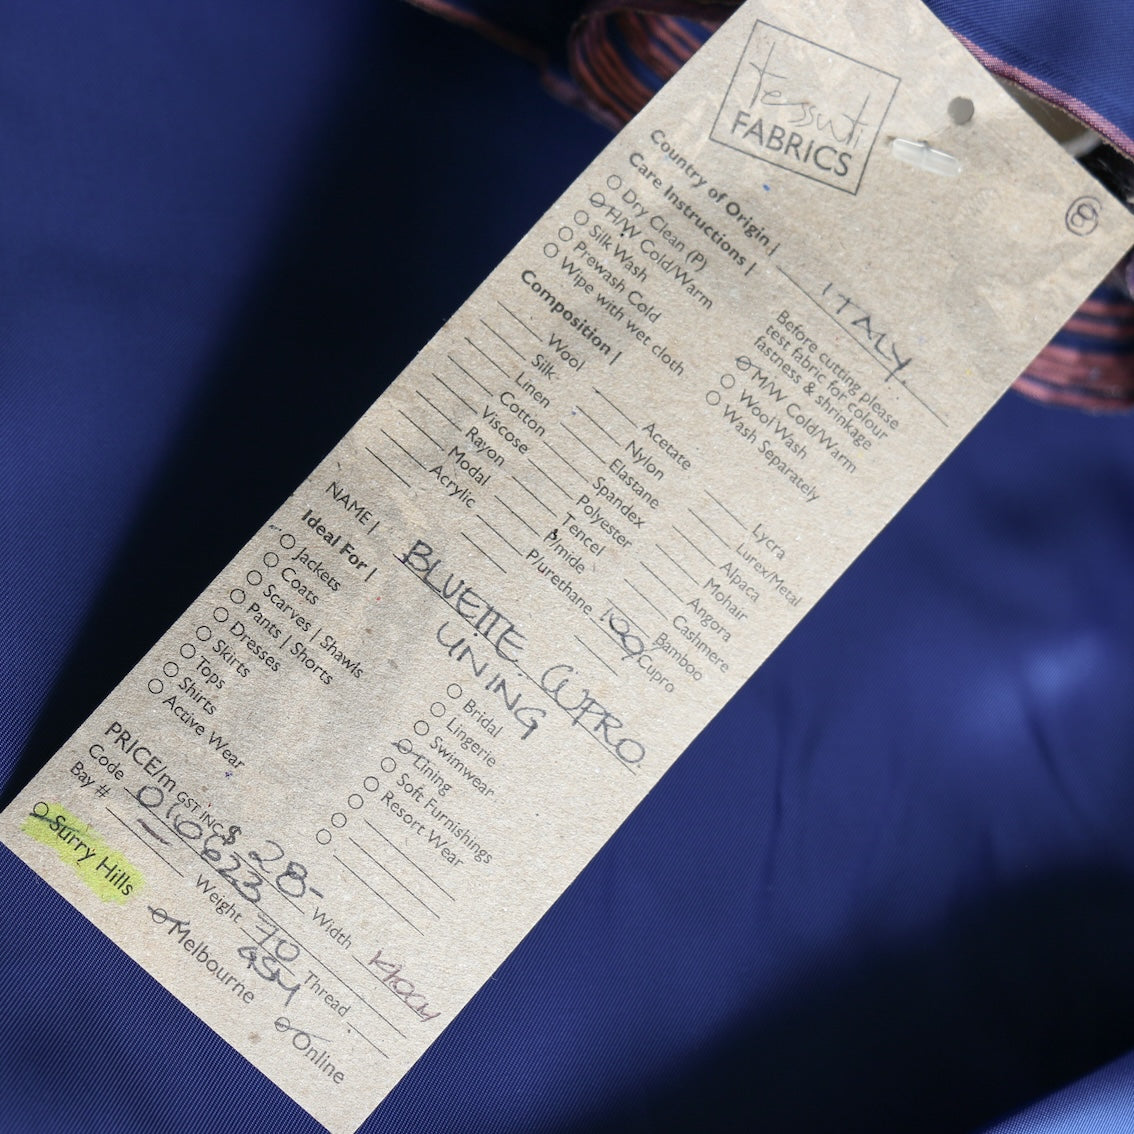 tessuti
FABRICS
60
Country of Origin | ITALY
Care Instructions |
Dry Clean (P)
H/W Cold/Warm
Silk Wash
Prewash Cold
Wipe with wet cloth
Before cutting please
test fabric for colour
fastness & shrinkage
M/W Cold/Warm
Wool Wash
Wash Separately
Composition |
Wool
Silk
Linen
Cotton
Viscose
Rayon
Modal
Acrylic
Acetate
Nylon
Elastane
Spandex
Polyester
Tencel
P/mide
P/urethane
Lycra
Lurex/Metal
Alpaca
Mohair
Angora
Cashmere
Bamboo
100% Cupro
NAME | BLUETTE CUPRO
LINING
Ideal For |
Jackets
Coats
Scarves | Shawls
Pants | Shorts
Dresses
Skirts
Tops
Shirts
Active Wear
Bridal
Lingerie
Swimwear
Lining
Soft Furnishings
Resort Wear
PRICE/m GST INC $ 28-
Code 010623 Width
Bay # — Weight 70 GSM Thread
Surry Hills
Melbourne
Online